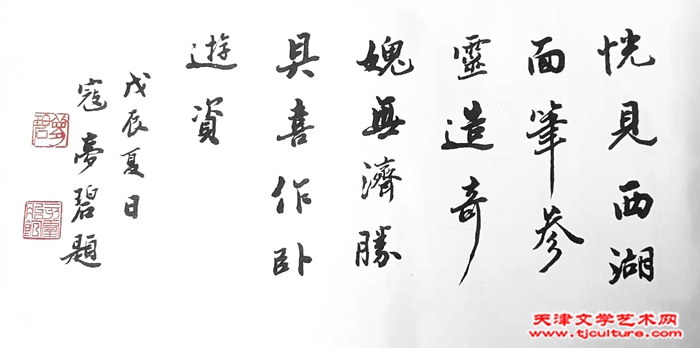 恍見西湖
面筆參
靈造奇
媿無濟勝
具喜作卧
遊資
戊辰夏日
寇夢碧題
天津文学艺术网
www.tjculture.com